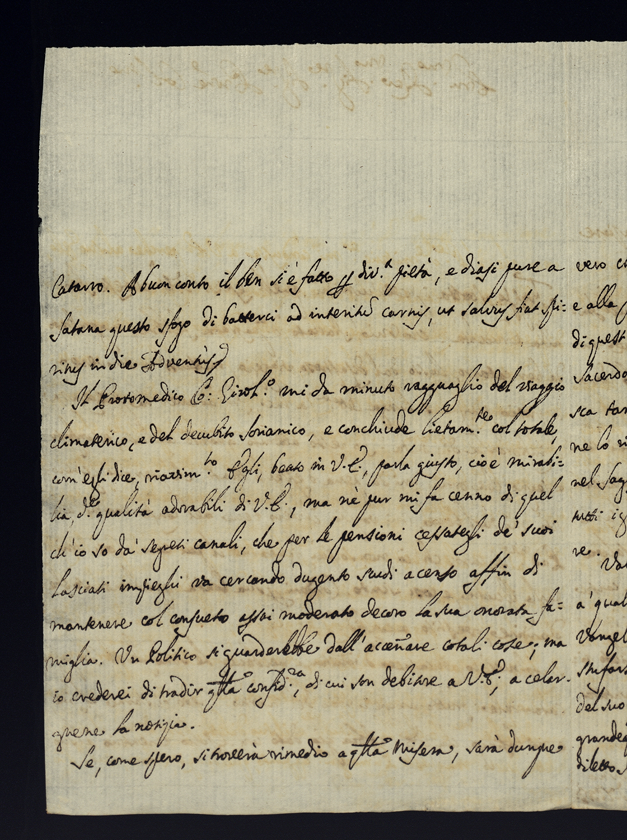 Catarro. A buon conto il ben si è fatto per div.a pietà, e diasi pure a
Satana questo sfogo di batterci ad interitū carnis, ut salvus fiat spi=
ritus in die Adventus)
Il Protomedico C: Girol.o mi da minuto ragguaglio del viaggio
climaterico, e del decubito Sorianico, e conchiude lietam.te col totale,
com'egli dice, Egli, beato in V.E., parla giusto, cioè mirabi=
lia, d.e qualità adorabili di V.E., ma nè pur mi fa cenno di quel
ch'io so da' segreti canali, che per le pensioni cessategli de' suoi
lasciati impieghi va cercando dugento scudi a censo affin di
mantenere col consueto assai moderato decoro la sua onorata fa=
miglia. Un Politico si guarderebbe dall'accennare cotali cose; ma
io crederei di tradir qlla confid.za, di cui son debitore a V.E., a celar=
gliene la notizia.
Se, come spero, si troverà rimedio a qlla miseria, sarà dunque
vero
e alla
di quest
Sacerdo
sca tan
ne lo
nel
tutti
re.
a' qual
Vangel
del suo
diletto